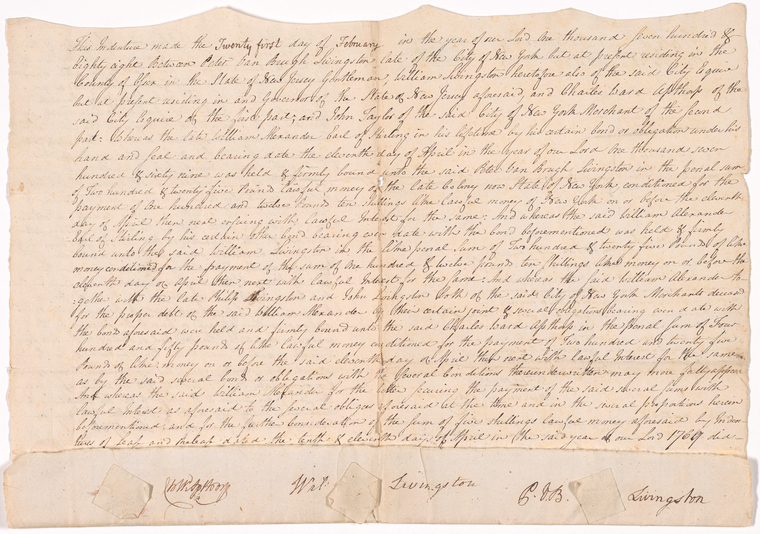 This Indenture made the Twenty first day of February in the year of our Lord One thousand seven hundred &
Eighty eight Between Peter Van Brugh Livingston late of the City of New York but at present residing in the
County of Essex in the State of New Jersey Gentleman, William Livingston heretofore also of the said City Esquire
but at present residing in and Governor of the State of New Jersey aforesaid, and Charles Ward Apthorp of the
said City Esquire of the first part; and John Taylor of the said City of New York Merchant of the second
part: Whereas the late William Alexander Earl of Sterling in his lifetime by his certain bond or obligation under his
hand and seal and bearing date the eleventh day of April in the Year of our Lord One thousand seven
hundred & sixty nine was held & firmly bound unto the said Peter Van Brugh Livingston in the penal sum
of Two hundred & twenty five Pounds lawful money of the late Colony now State of New York conditioned for the
payment of One hundred and twelve Pounds ten shillings like lawful money of New York on or before the eleventh
day of April then next ensuing with Lawful Interest for the same: And whereas the said William Alexander
Earl of Stirling by his certain other bond bearing even date with the bond beforementioned was held & firmly
bound unto the said William Livingston in the like penal sum of Two hundred & twenty five Pounds of like
money conditioned for the payment of the sum of One hundred & twelve pounds ten shillings like money on or before the
eleventh day of April then next with lawful Interest for the same: And whereas the said William Alexander to-
gether with the late Philip Livingston and John Livingston both of the said City of New York Merchants deceased
for the proper debt of the said William Alexander by their certain joint & several obligation bearing even date with
the bonds aforesaid were held and firmly bound unto the said Charles Ward Apthorp in the penal sum of Four
hundred and fifty pounds of like lawful money conditioned for the payment of Two hundred and twenty five
Pounds of like money on or before the said eleventh day of April then next with lawful Interest for the same
as by the said several bonds or obligations with the several Conditions thereunderwritten may more fully appear
And whereas the said William Alexander for the better securing the payment of the said several sums with
lawful Interest as aforesaid to the several obligees aforesaid at the time and in the several proportions herein
beforementioned: and for the further Consideration of the sum of five shillings lawful money aforesaid by Inden-
tures of Lease and Release dated the tenth & eleventh days of April in the said year of our Lord 1769 did
Wil: Livingston P. V. B. Livingston